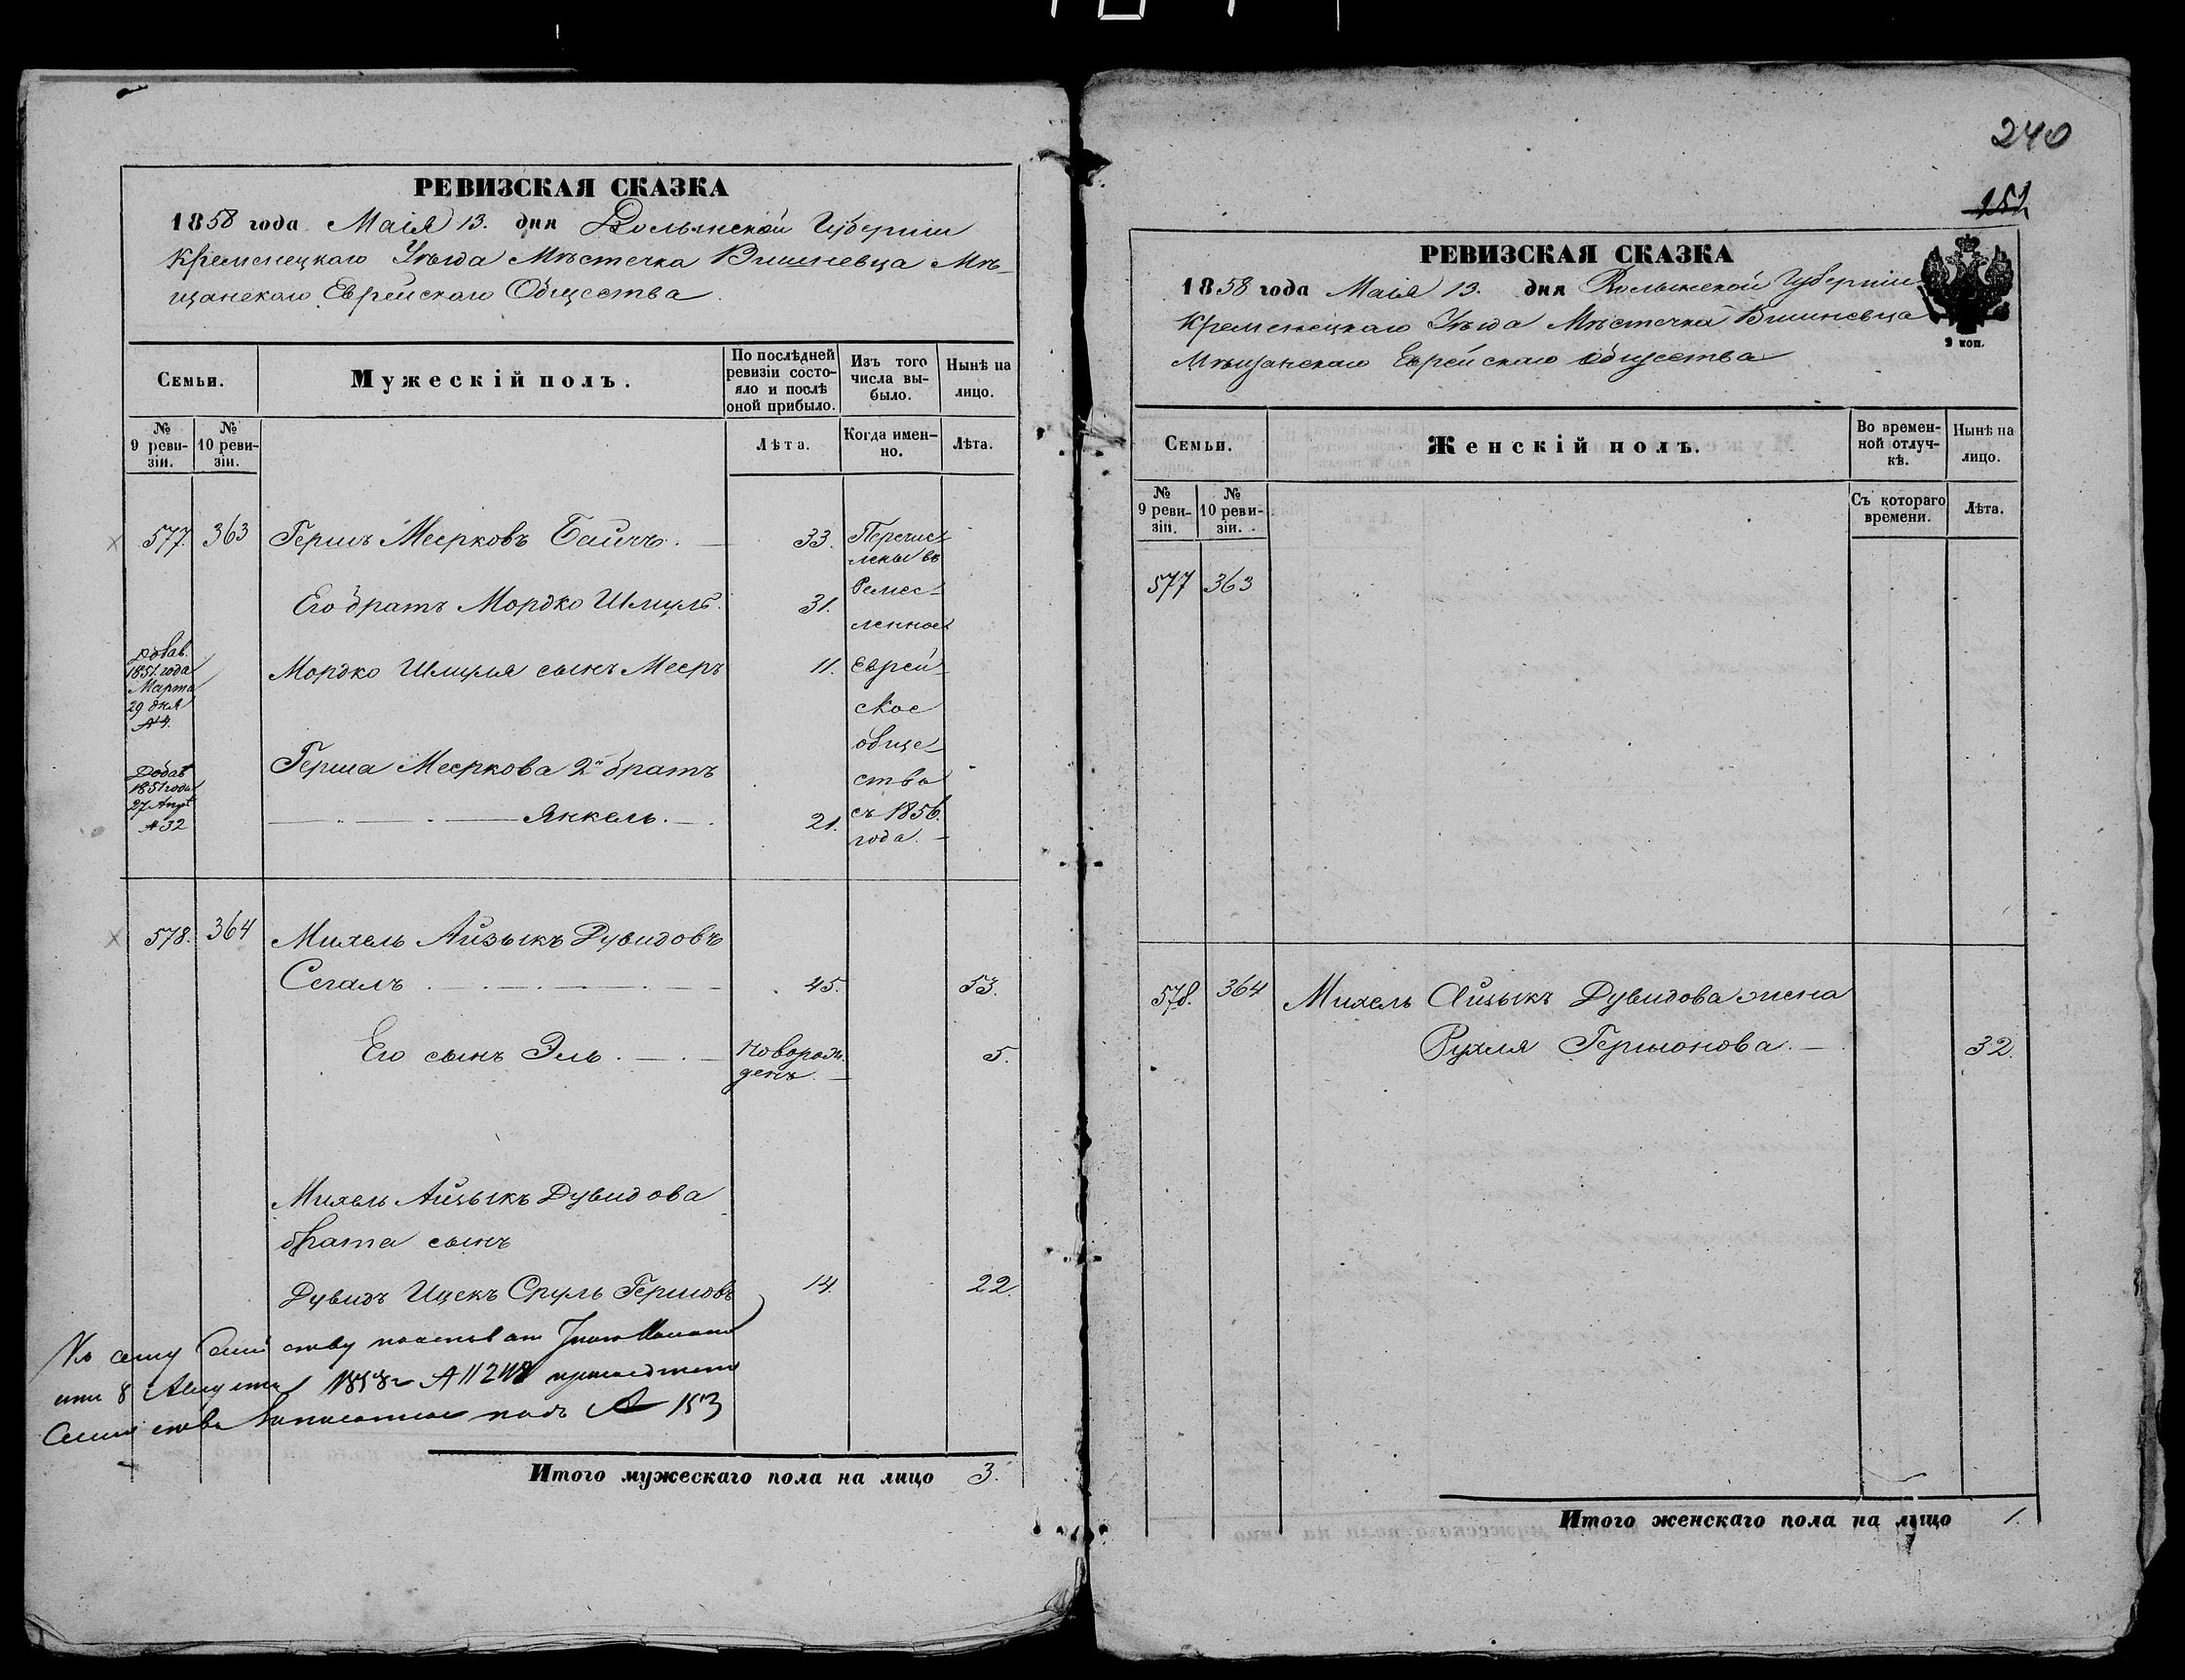 РЕВИЗСКАЯ СКАЗКА
1858 года Маія 13. дня Волынской Губерніи
Кременецкаго Уѣзда Мѣстечка Вишневца Мѣ-
щанскаго Еврейскаго Общества
Семьи.
Мужескій полъ.
По послѣдней ревизіи состояло и послѣ оной прибыло.
Изъ того числа вы-было.
Нынѣ на лицо.
№ 9 реви-зіи.
№ 10 реви-зіи.
Лѣта.
Когда имен-но.
Лѣта.
577. 363 Гершъ Меерковъ 33. Перечис-
лены въ
Его братъ Мордко Шмуль. 31. Ремес-
ленное
Добав. 1851 года Марта 29 дня №4. Мордко Шмуля сынъ Мееръ 11. Еврей-
ское
обще-
Добав 1851 года 27 №32 Герша Мееркова 2й братъ ства
Янкель. 21. съ 1856.
года.
578. 364 Михель Айзыкъ Дувидовъ
Сегалъ 45. 53.
Его сынъ Эль. Новорож-
денъ 5.
Михель Айзыкъ Дувидова
брата сынъ
Дувидъ Ицекъ Сруль Гершовъ 14. 22.
Къ сему Семейству
8 Августа 1858
Семейство записанное подъ № 153
Итого мужескаго пола на лицо 3.
240
151
РЕВИЗСКАЯ СКАЗКА
1858 года Маія 13. дня Волынской Губерніи
Кременецкаго Уѣзда Мѣстечка Вишневца
Мѣщанскаго Еврейскаго Общества
2 коп.
Семьи.
Женскій полъ.
Во времен-ной отлуч-кѣ.
Нынѣ на лицо.
№ 9 реви-зіи.
№ 10 реви-зіи.
Съ котораго времени.
Лѣта.
577 363
578. 364 Михель Айзыкъ Дувидова жена
Рухля Гершонова. 32.
Итого женскаго пола на лицо 1.